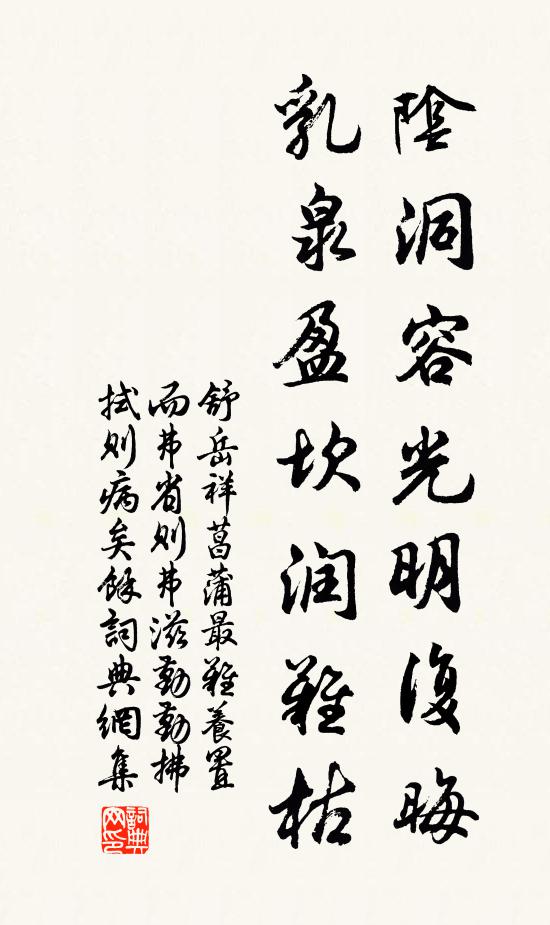 陰洞容光明復晦
乳泉盈坎潤難枯
舒岳祥菖蒲最難養置
而弗省則弗滋勤勤拂
拭則病矣餘詞典網集
詞典網印